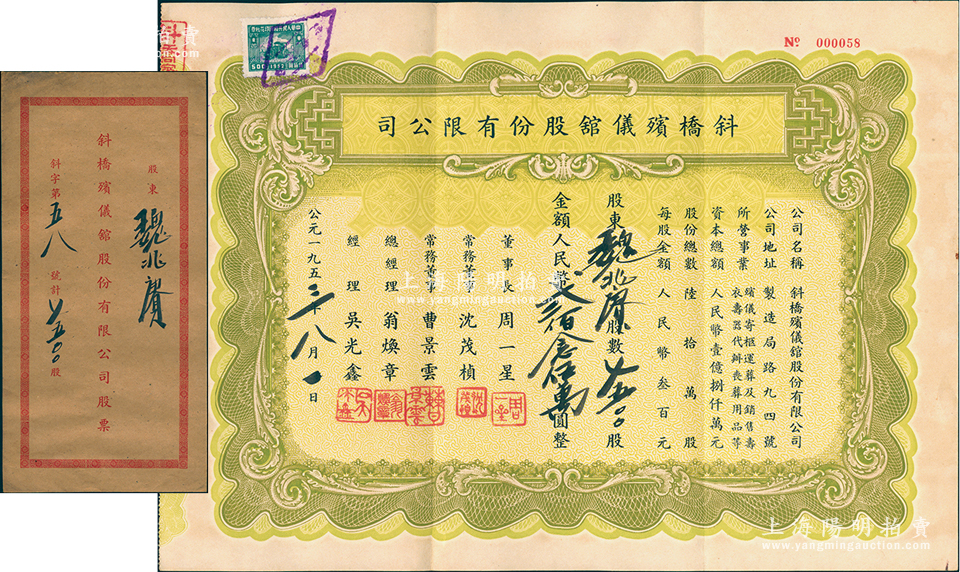 股東 魏兆賡
斜橋殯儀舘股份有限公司股票
斜字第五八號計 股
Nº 000058
斜橋殯儀舘股份有限公司
公司名稱 斜橋殯儀舘股份有限公司
公司地址 製造局路九四號
所營事業 殯儀寄柩運葬及銷售壽衣壽器代辦喪葬用品等
資本總額 人民幣壹億捌仟萬元
股份總數 陸拾萬股
每股金額 人民幣叁百元
股東魏兆賡股數 股
金額人民幣弍佰念伍萬圓整
董事長 周一星
常務董事 沈茂楨
常務董事 曹景雲
總經理 翁煥章
經理 吳光鑫
公元一九五三年八月一日
上海陽明拍賣
www.yangmingauction.com